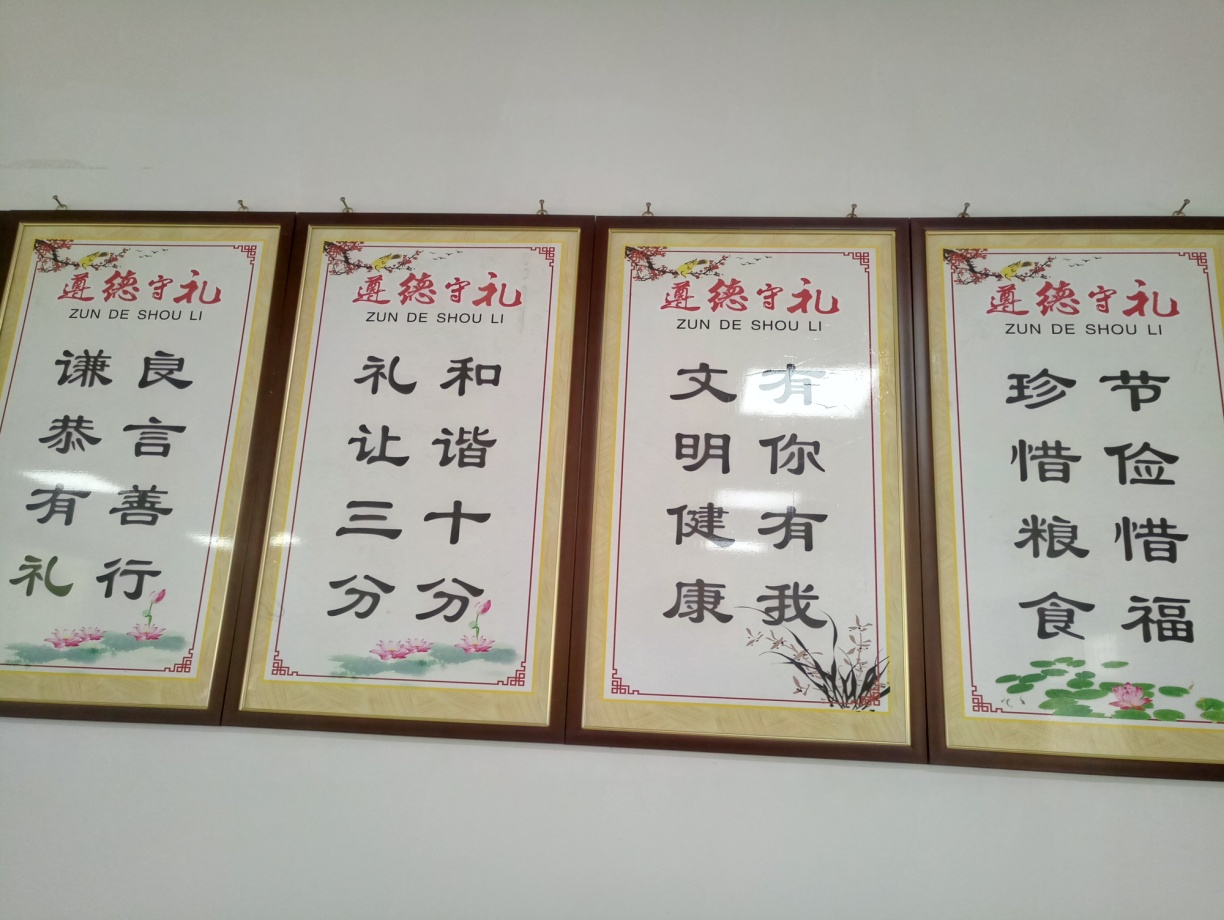 遵德守礼
ZUN DE SHOU LI
谦恭有礼
良言善行
遵德守礼
ZUN DE SHOU LI
礼让三分
和谐十分
遵德守礼
ZUN DE SHOU LI
文明健康
有你有我
遵德守礼
ZUN DE SHOU LI
珍惜粮食
节俭惜福